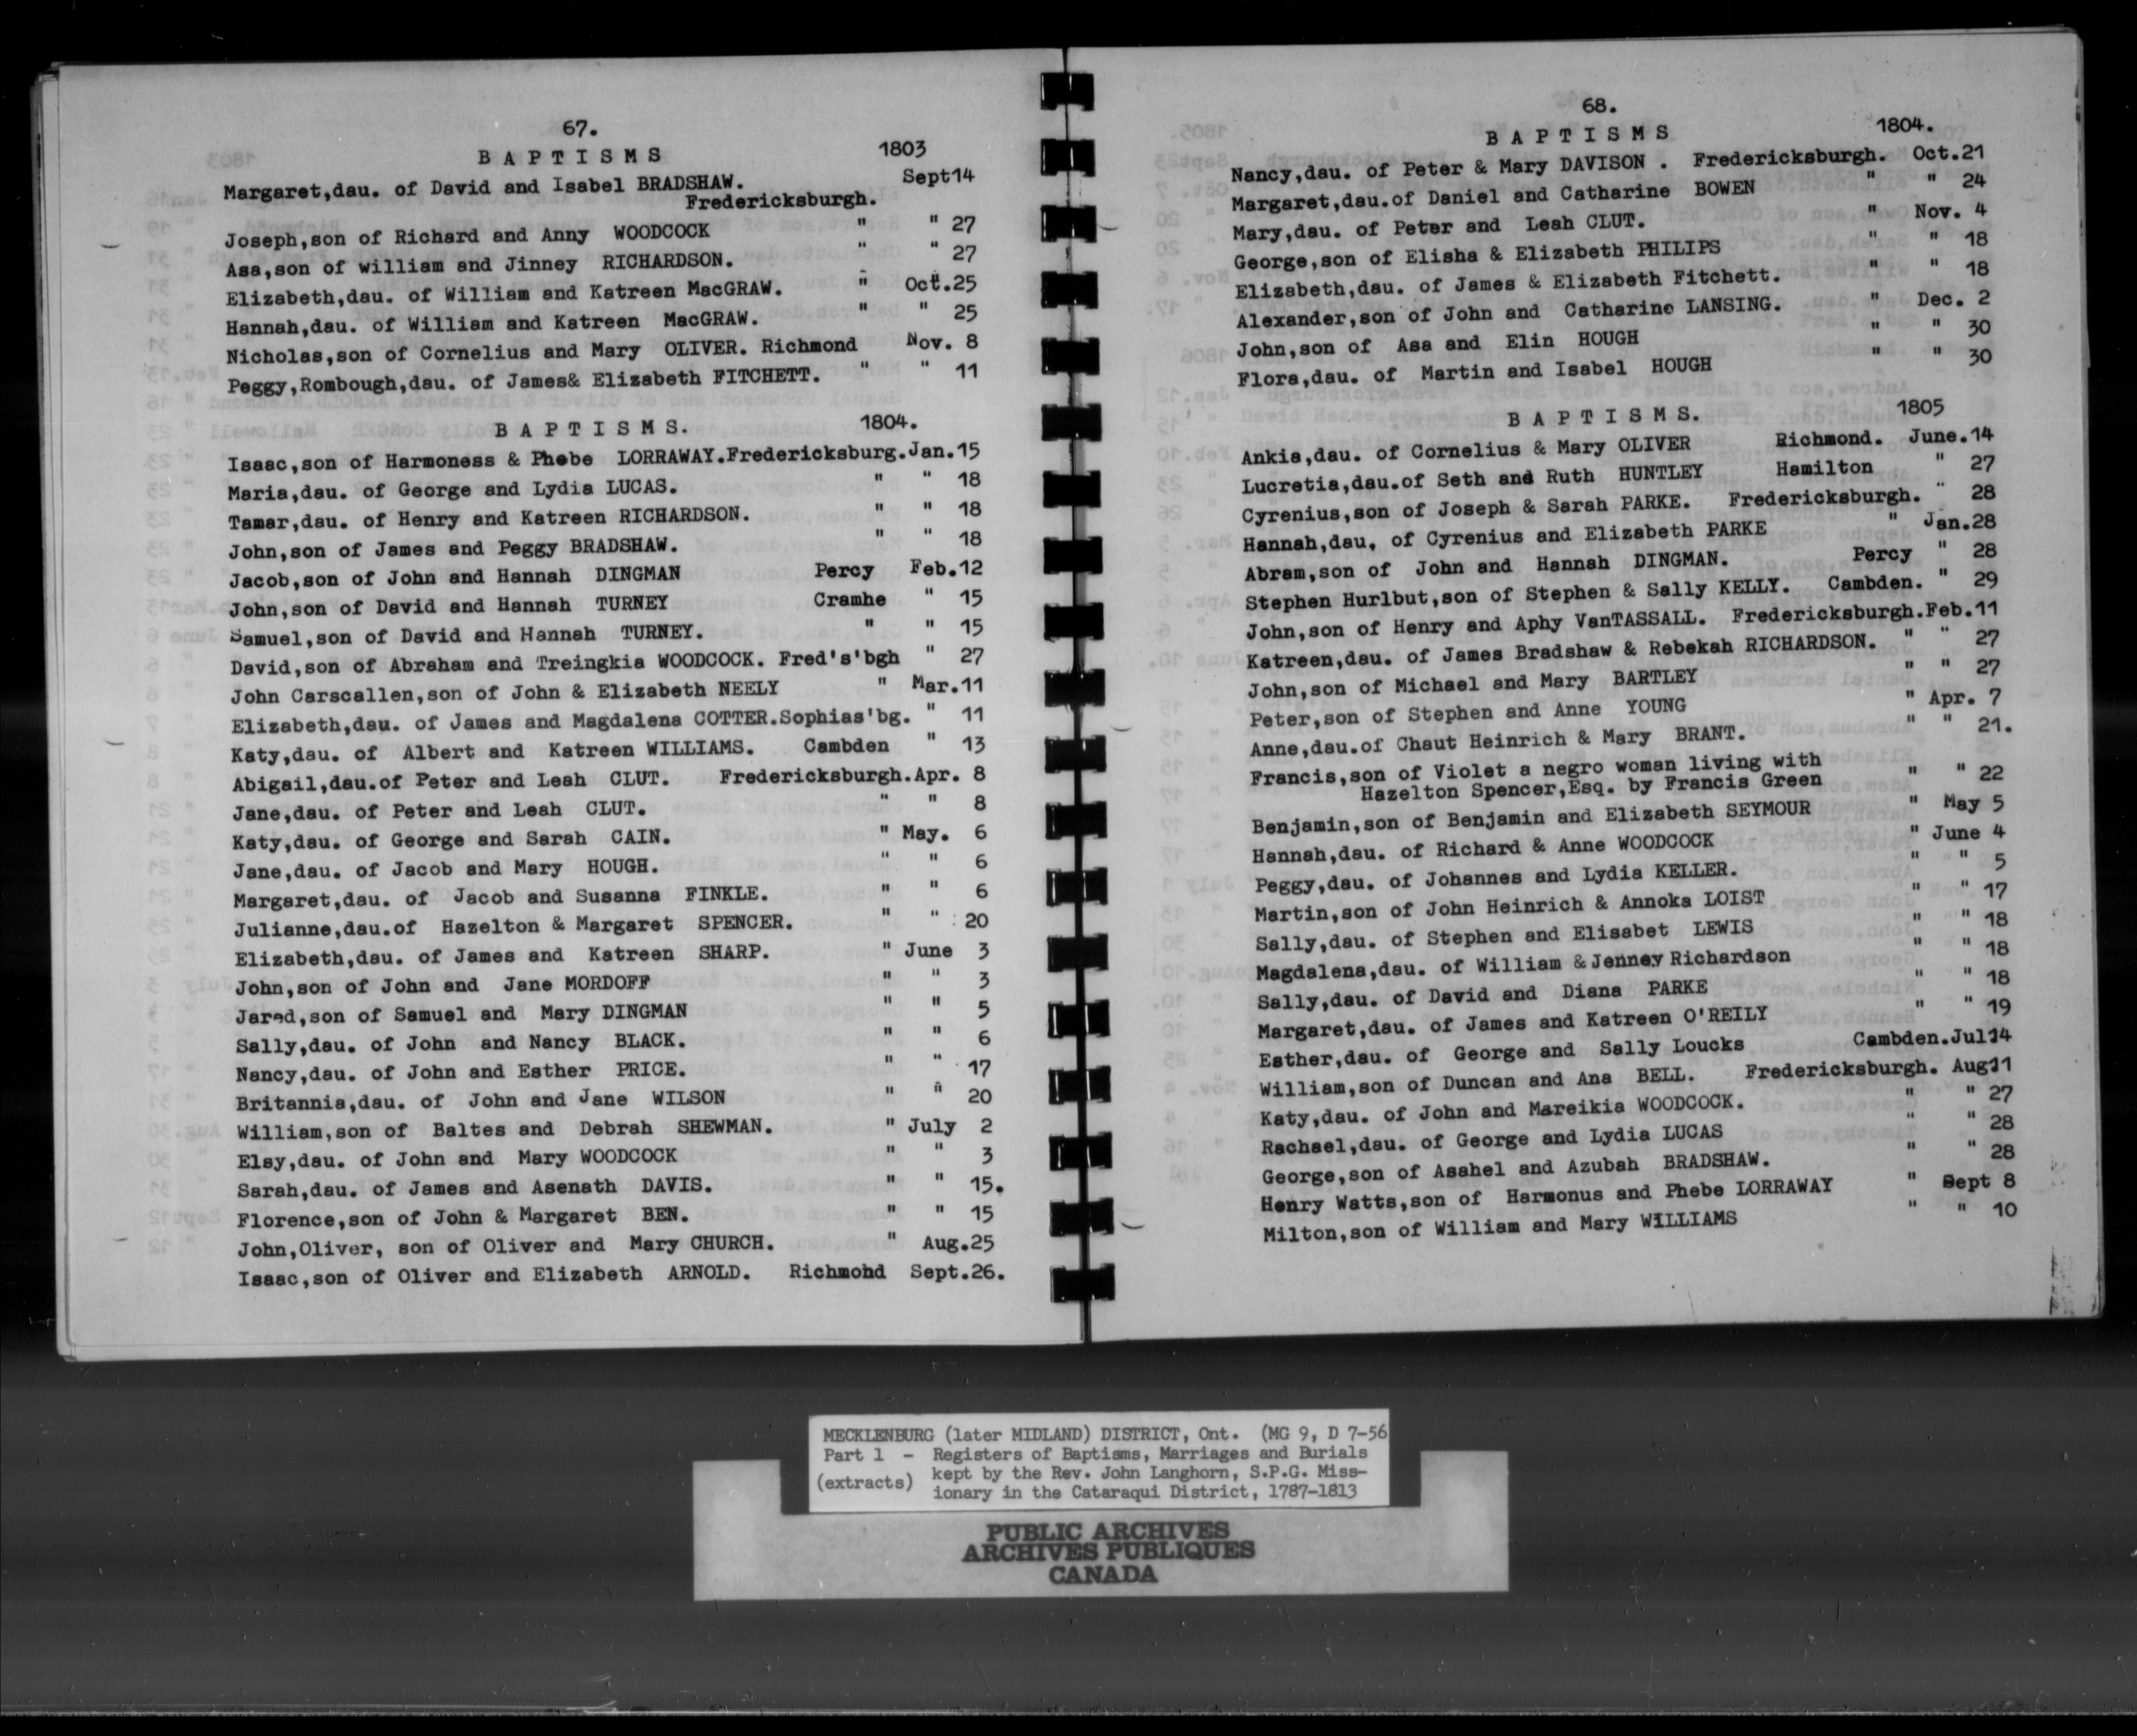 67.
B A P T I S M S 1803
Margaret,dau. of David and Isabel BRADSHAW. Sept14
Fredericksburgh.
Joseph,son of Richard and Anny WOODCOCK " " 27
Asa,son of william and Jinney RICHARDSON. " " 27
Elizabeth,dau. of William and Katreen MacGRAW. " Oct.25
Hannah,dau. of William and Katreen MacGRAW. " " 25
Nicholas,son of Cornelius and Mary OLIVER. Richmond Nov. 8
Peggy,Rombough,dau. of James& Elizabeth FITCHETT. " " 11
B A P T I S M S. 1804.
Isaac,son of Harmoness & Phebe LORRAWAY.Fredericksburg.Jan.15
Maria,dau. of George and Lydia LUCAS. " " 18
Tamar,dau. of Henry and Katreen RICHARDSON. " " 18
John,son of James and Peggy BRADSHAW. " " 18
Jacob,son of John and Hannah DINGMAN Percy Feb.12
John,son of David and Hannah TURNEY Cramhe " 15
Samuel,son of David and Hannah TURNEY. " " 15
David,son of Abraham and Treingkia WOODCOCK. Fred's'bgh " 27
John Carscallen,son of John & Elizabeth NEELY " Mar.11
Elizabeth,dau. of James and Magdalena COTTER.Sophias'bg. " 11
Katy,dau. of Albert and Katreen WILLIAMS. Cambden " 13
Abigail,dau.of Peter and Leah CLUT. Fredericksburgh.Apr. 8
Jane,dau. of Peter and Leah CLUT. " " 8
Katy,dau. of George and Sarah CAIN. " May. 6
Jane,dau. of Jacob and Mary HOUGH. " " 6
Margaret,dau. of Jacob and Susanna FINKLE. " " 6
Julianne,dau.of Hazelton & Margaret SPENCER. " " 20
Elizabeth,dau. of James and Katreen SHARP. " June 3
John,son of John and Jane MORDOFF " " 3
Jared,son of Samuel and Mary DINGMAN " " 5
Sally,dau. of John and Nancy BLACK. " " 6
Nancy,dau. of John and Esther PRICE. " " 17
Britannia,dau. of John and Jane WILSON " " 20
William,son of Baltes and Debrah SHEWMAN. " July 2
Elsy,dau. of John and Mary WOODCOCK " " 3
Sarah,dau. of James and Asenath DAVIS. " " 15.
Florence,son of John & Margaret BEN. " " 15
John,Oliver, son of Oliver and Mary CHURCH. " Aug.25
Isaac,son of Oliver and Elizabeth ARNOLD. Richmond Sept.26.
68.
B A P T I S M S 1804.
Nancy,dau. of Peter & Mary DAVISON . Fredericksburgh. Oct.21
Margaret,dau.of Daniel and Catharine BOWEN " " 24
Mary,dau. of Peter and Leah CLUT. " Nov. 4
George,son of Elisha & Elizabeth PHILIPS " " 18
Elizabeth,dau. of James & Elizabeth Fitchett. " " 18
Alexander,son of John and Catharine LANSING. " Dec. 2
John,son of Asa and Elin HOUGH " " 30
Flora,dau. of Martin and Isabel HOUGH " " 30
B A P T I S M S. 1805
Ankia,dau. of Cornelius & Mary OLIVER Richmond. June.14
Lucretia,dau.of Seth and Ruth HUNTLEY Hamilton " 27
Cyrenius,son of Joseph & Sarah PARKE. Fredericksburgh. " 28
Hannah,dau. of Cyrenius and Elizabeth PARKE " Jan.28
Abram,son of John and Hannah DINGMAN. Percy " 28
Stephen Hurlbut,son of Stephen & Sally KELLY. Cambden. " 29
John,son of Henry and Aphy VanTASSALL. Fredericksburgh.Feb.11
Katreen,dau. of James Bradshaw & Rebekah RICHARDSON. " " 27
John,son of Michael and Mary BARTLEY " " 27
Peter,son of Stephen and Anne YOUNG " Apr. 7
Anne,dau.of Chaut Heinrich & Mary BRANT. " " 21.
Francis,son of Violet a negro woman living with
Hazelton Spencer,Esq. by Francis Green " " 22
Benjamin,son of Benjamin and Elizabeth SEYMOUR " May 5
Hannah,dau. of Richard & Anne WOODCOCK " June 4
Peggy,dau. of Johannes and Lydia KELLER. " " 5
Martin,son of John Heinrich & Annoka LOIST " " 17
Sally,dau. of Stephen and Elisabet LEWIS " " 18
Magdalena,dau. of William & Jenney Richardson " " 18
Sally,dau. of David and Diana PARKE " " 18
Margaret,dau. of James and Katreen O'REILY " " 19
Esther,dau. of George and Sally Loucks Cambden.Jul14
William,son of Duncan and Ana BELL. Fredericksburgh. Aug11
Katy,dau. of John and Mareikia WOODCOCK. " " 27
Rachael,dau. of George and Lydia LUCAS " " 28
George,son of Asahel and Azubah BRADSHAW. " " 28
Henry Watts,son of Harmonus and Phebe LORRAWAY " Sept 8
Milton,son of William and Mary WILLIAMS " " 10
MECKLENBURG (later MIDLAND) DISTRICT, Ont. (MG 9, D 7-56
Part 1 - Registers of Baptisms, Marriages and Burials
(extracts) kept by the Rev. John Langhorn, S.P.G. Miss-
ionary in the Cataraqui District, 1787-1813
PUBLIC ARCHIVES
ARCHIVES PUBLIQUES
CANADA